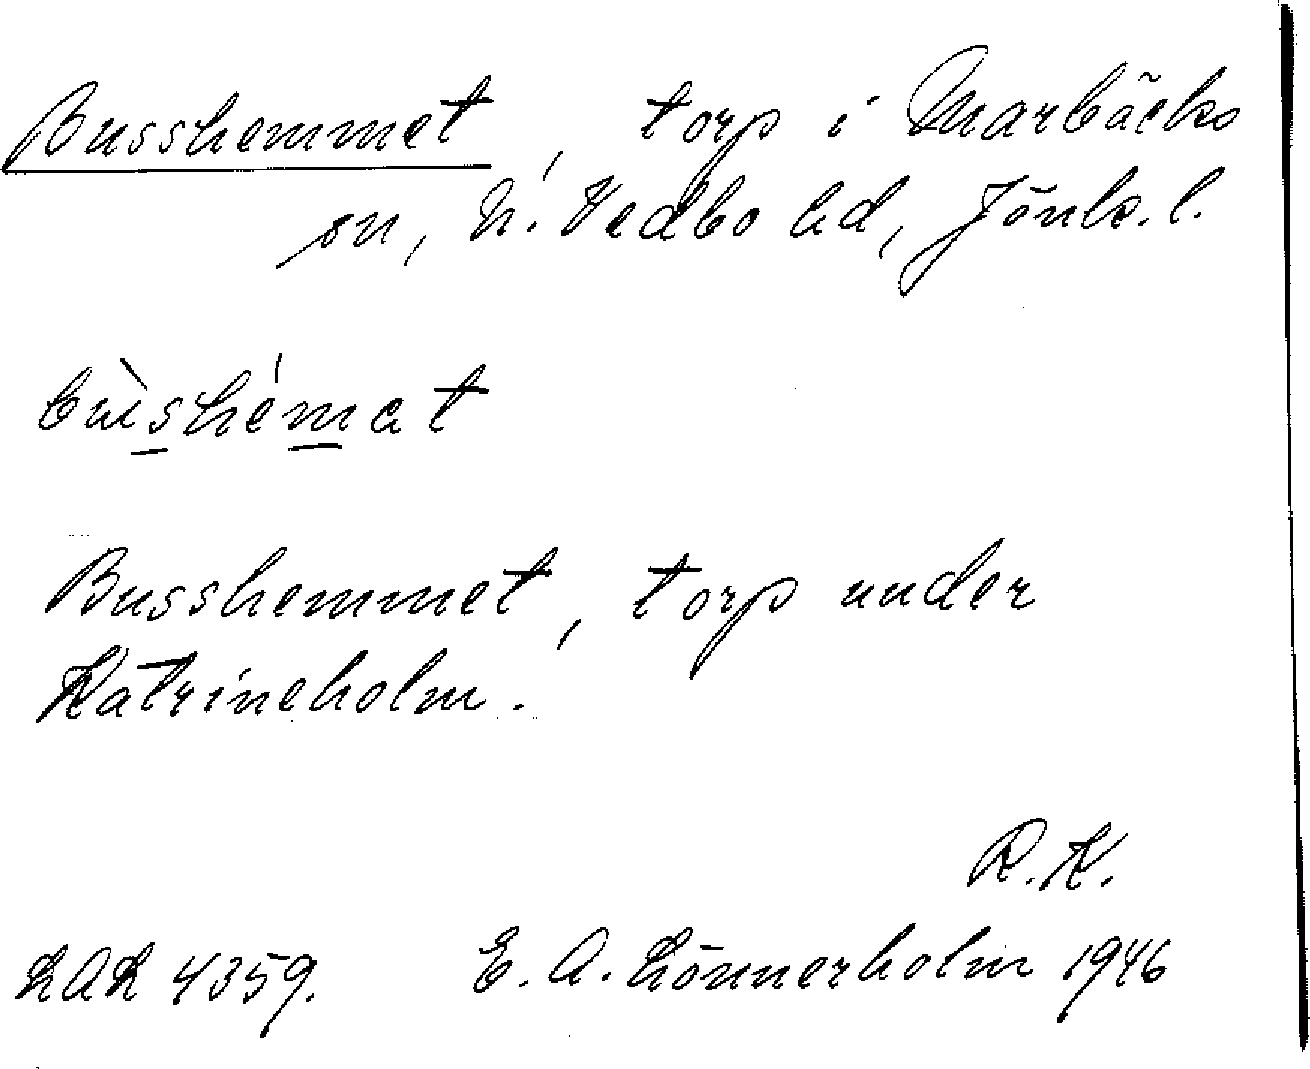 Busshemmet, torp i Marbäcks
sn, N. Vedbo hd, Jönk. l.
bùshémat
Busshemmet, torp under
Katrineholm.
R.K.
E. A. Lönnerholm 1946
4359.